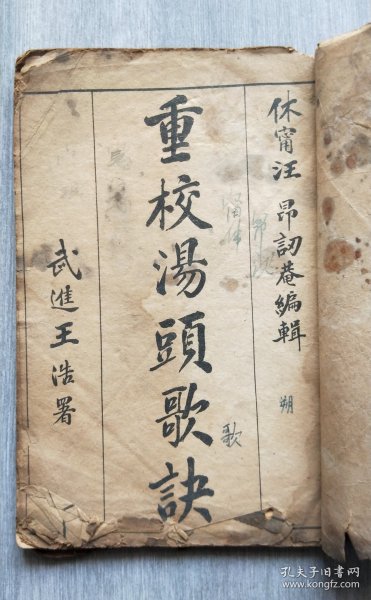 休甯汪昂訒菴編輯
朔
重校湯頭歌訣
歌
武進王浩署
孔夫子旧书网
www.kongfz.com